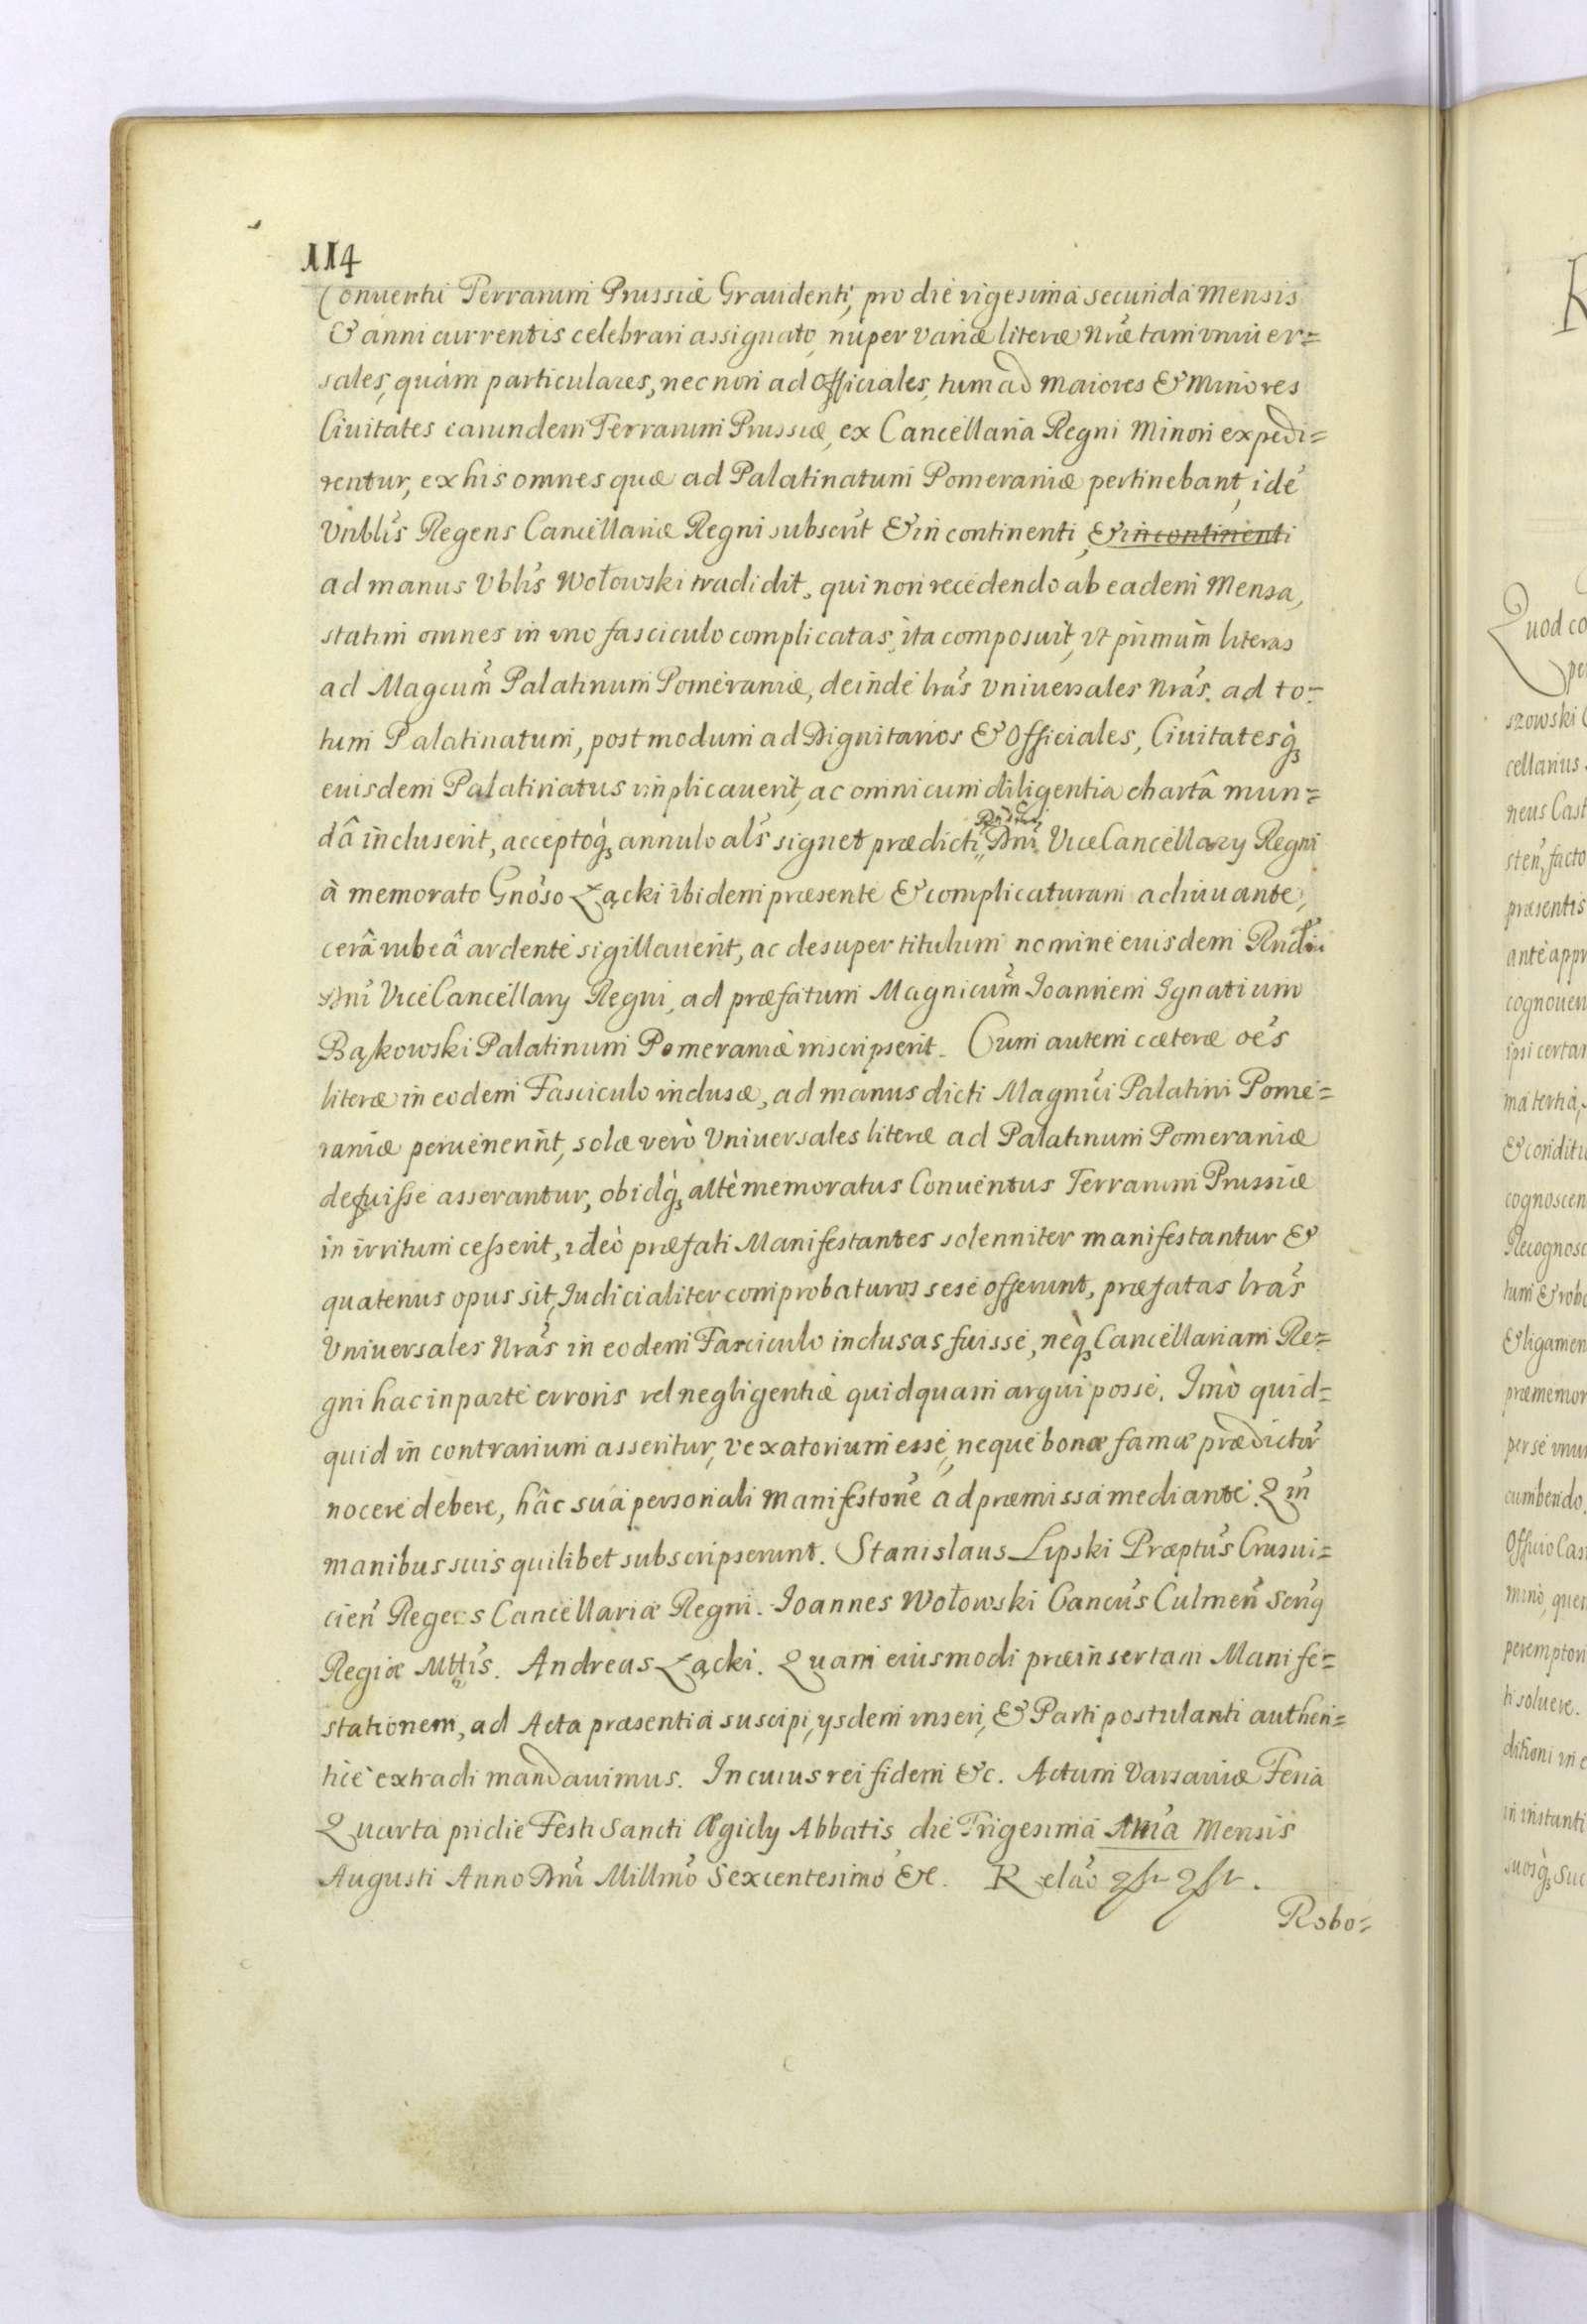 114
Conuentui Terrarum Prussiæ Graudenti, pro die vigesima secunda Mensis
& anni currentis celebrari assignato, nuper variæ literæ Nræ tam vniuer=
sales, quàm particulares, nec non ad Officiales, tum ad Maiores & Minores
Ciuitates earundem Terrarum Prussiæ, ex Cancellaria Regni Minori expedi=
rentur, ex his omnes quæ ad Palatinatum Pomeraniæ pertinebant, idé
Vnblis Regens Cancellariæ Regni subscrit & in continenti, & in continenti
ad manus Vblis Wołowski tradidit, qui non recedendo ab eadem Mensa,
statim omnes in vno fasciculo complicatas, ita composuit, vt primum literas
ad Magcum Palatinum Pomeraniæ, deinde lras vniuersales Nras. ad to=
tum Palatinatum, post modum ad Dignitarios & Officiales, Ciuitatesq
euisdem Palatinatus implicauerit, ac omni cum diligentia chartâ mun=
dâ incluserit, acceptoq annulo als signet prædicti Rndmi Dni ViceCancellary Regni
à memorato Gnoso Łącki ibidem præsente & complicaturam adiuuante,
cerâ rubeâ ardente sigillauerit, ac desuper titulum nomine euisdem Rndmi
Dni ViceCancellary Regni, ad præfatum Magnicum Joannem Ignatium
Bąkowski Palatinum Pomeraniæ inscripserit. Cum autem cæteræ oes
literæ in eodem Fasciculo inclusæ, ad manus dicti Magnici Palatini Pome=
raniæ peruenerint, solæ verò Vniuersales literæ ad Palatinum Pomeraniæ
defuisse asserantur, ob idq altè memoratus Conuentus Terrarum Prussiæ
in irritum cesserit, ideò præfati Manifestantes solenniter manifestantur &
quatenus opus sit, Iudicialiter comprobaturos sese offerunt, præfatas lras
Vniuersales Nras in eodem Fasciculo inclusas fuisse, neq Cancellariam Re=
gni hac in parte erroris vel negligentiæ quidquam argui posse. Imò quid=
quid in contrarium asseritur, vexatorium esse, neque bonæ famæ prædictor
nocere debere, hâc sua personali Manifestone ad præmissa mediante. Qui
manibus suis quilibet subscripserunt. Stanislaus Lipski Præptus Crusui=
cien Regens Cancellariæ Regni. Joannes Wołowski Cancus Culmen Scrig
Regiæ Mttis. Andreas Łącki. Quam eiusmodi præinsertam Manife=
stationem, ad Acta præsentia suscipi, ysdem inseri, & Parti postulanti authen=
ticè extradi mandauimus. In cuius rei fidem &c. Actum Varsauiæ Feria
Quarta pridie Festi Sancti Ægidy Abbatis die Trigesima Mensis
Augusti Anno Dni Millmo Sexcentesimo &c. Relao
Robo=